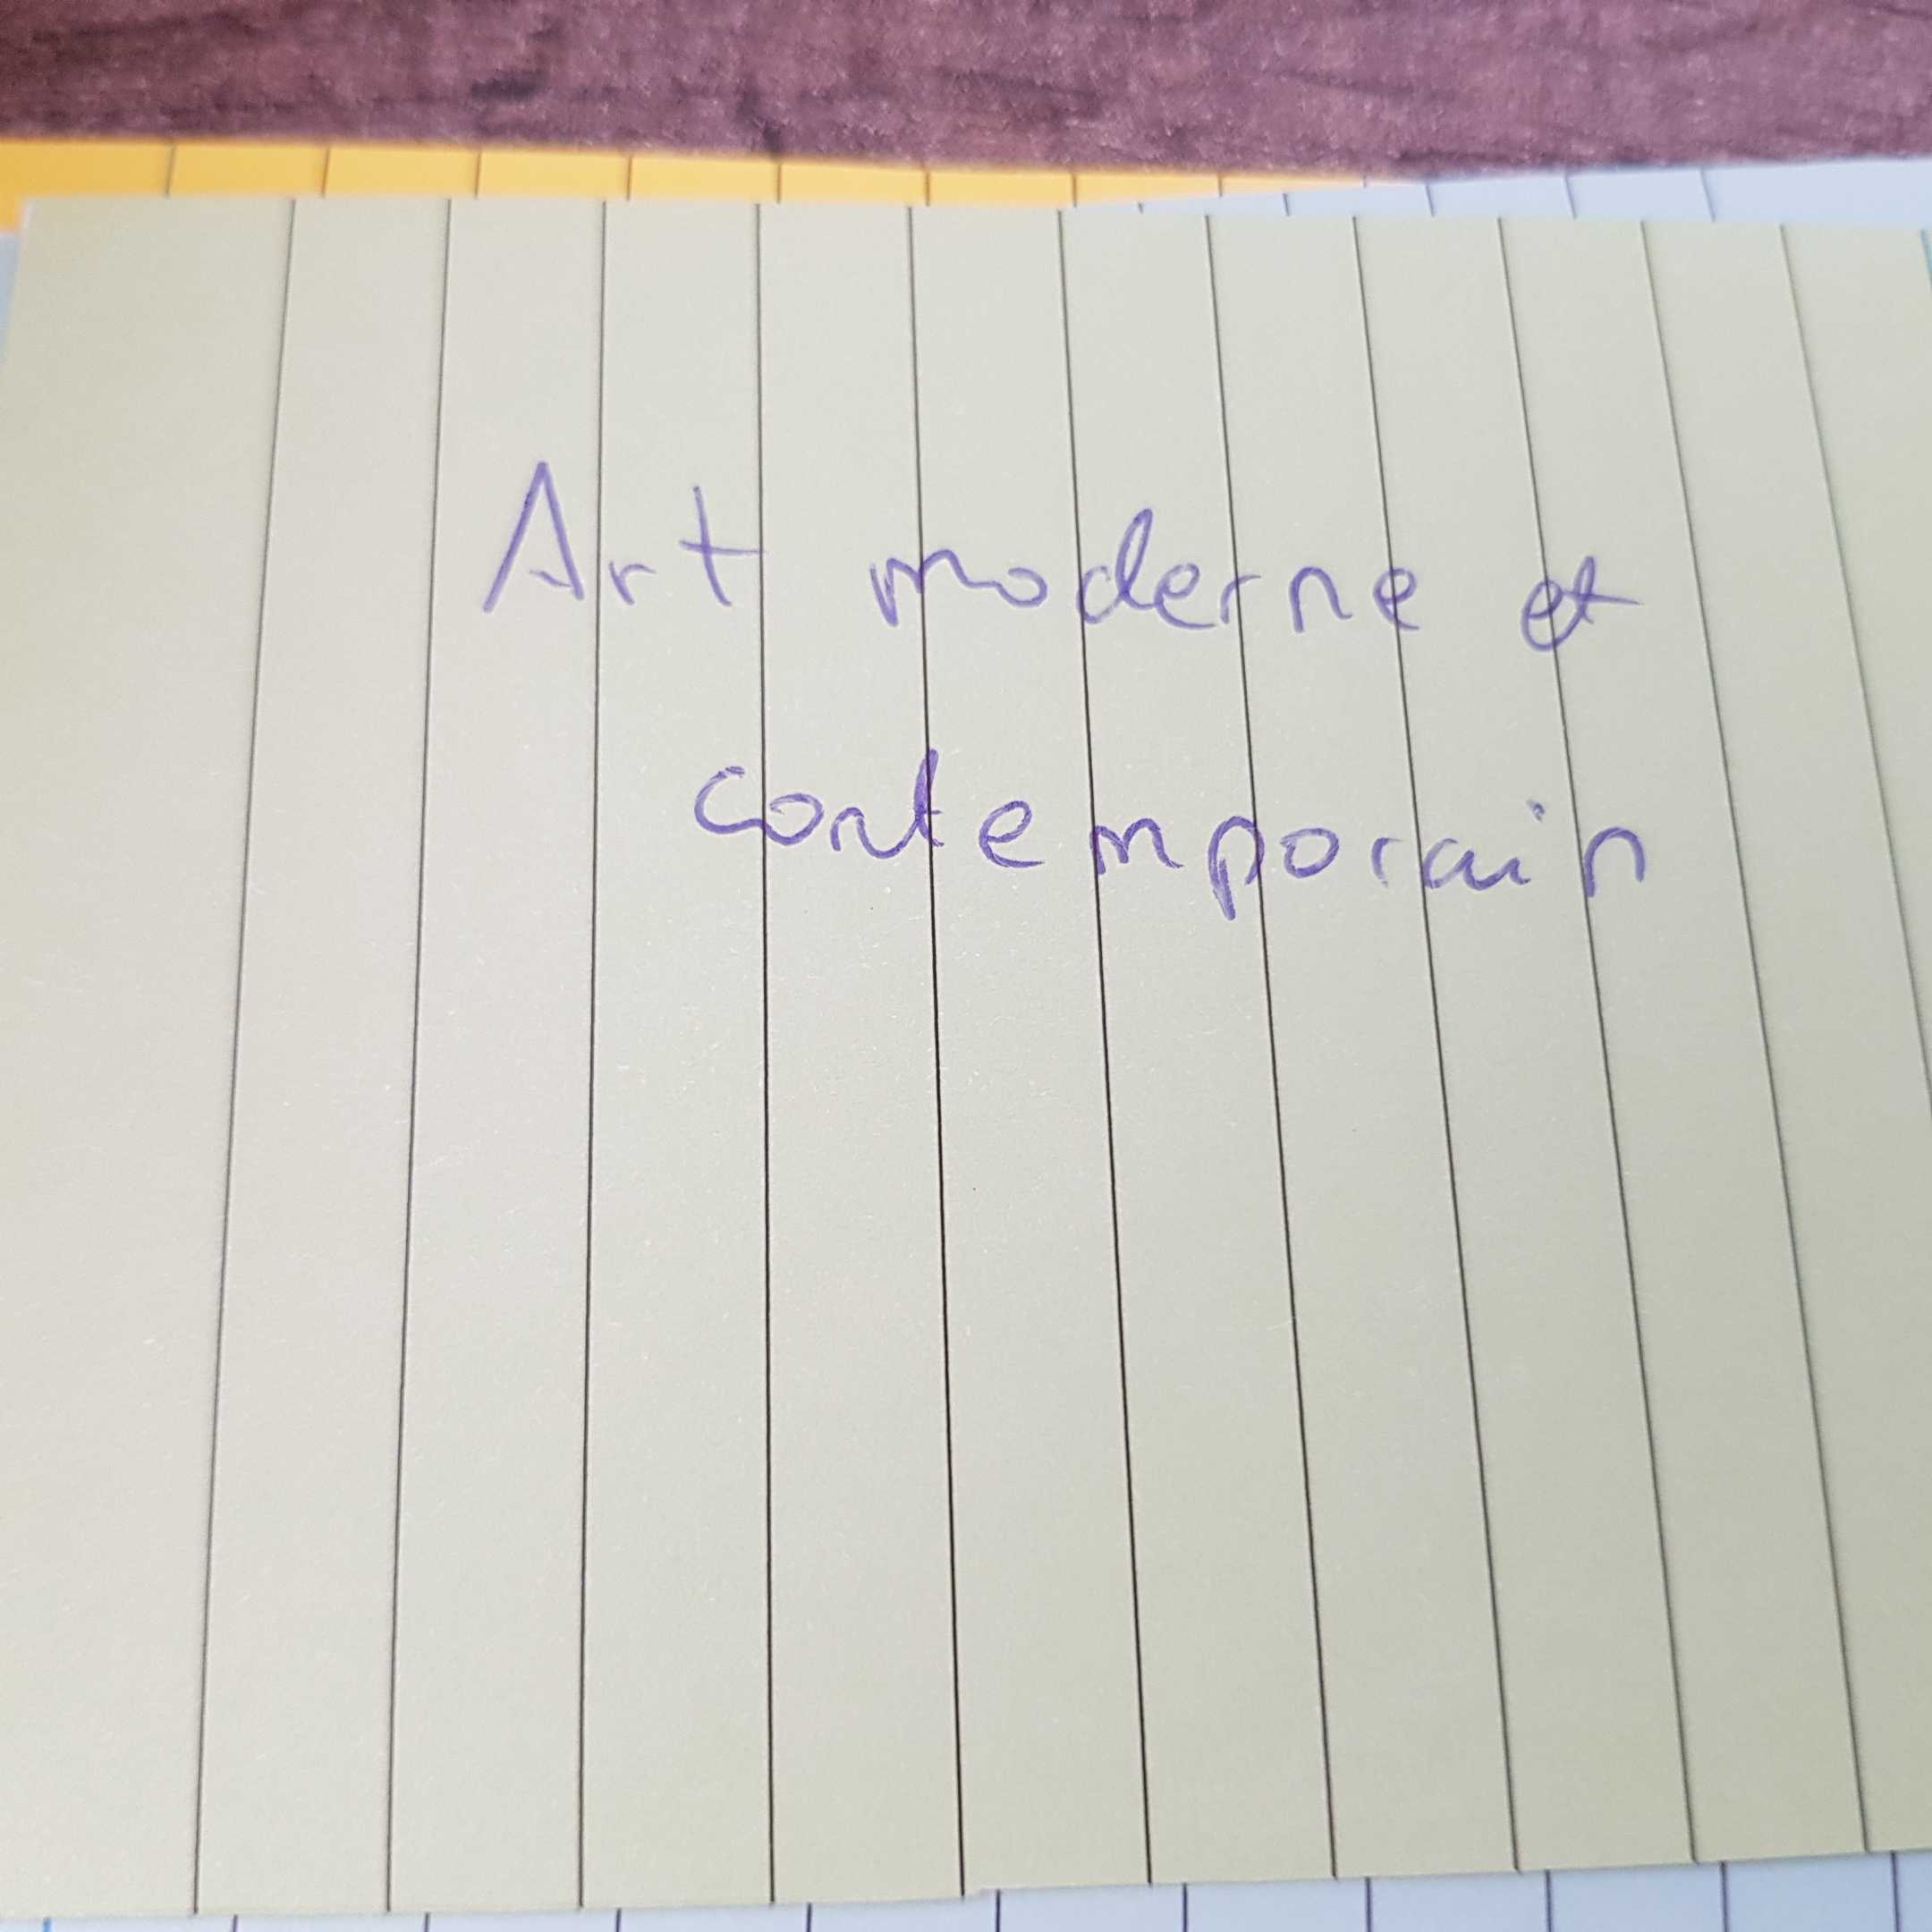 Art moderne et
contemporain